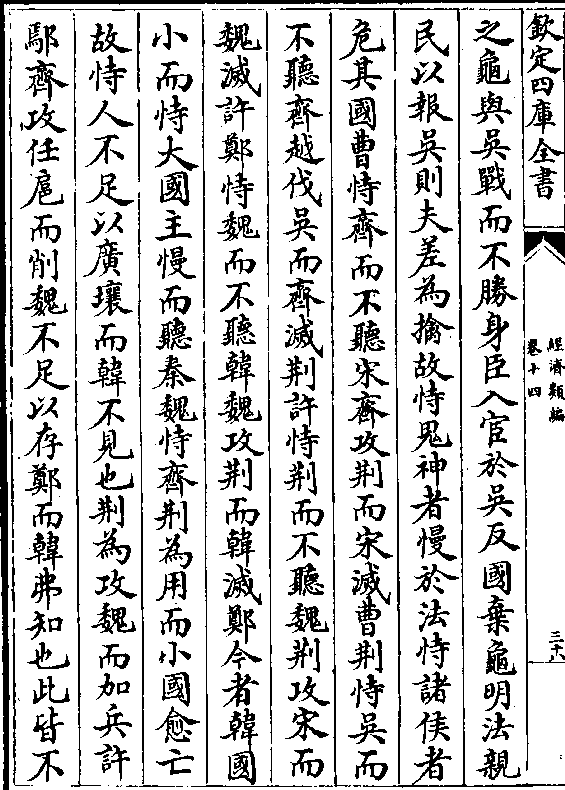 欽定四庫全書
經濟類編
卷十四
三十八
之龜與吳戰而不勝身臣入宦於吳反國棄龜明法親
民以報吳則夫差為擒故恃鬼神者慢於法恃諸侯者
危其國曹恃齊而不聽宋齊攻荆而宋滅曹荆恃吳而
不聽齊越伐吳而齊滅荆許恃荆而不聽魏荆攻宋而
魏滅許鄭恃魏而不聽韓魏攻荆而韓滅鄭今者韓國
小而恃大國主慢而聽秦魏恃齊荆為用而小國愈亡
故恃人不足以廣壤而韓不見也荆為攻魏而加兵許
鄢齊攻任扈而削魏不足以存鄭而韓弗知也此皆不